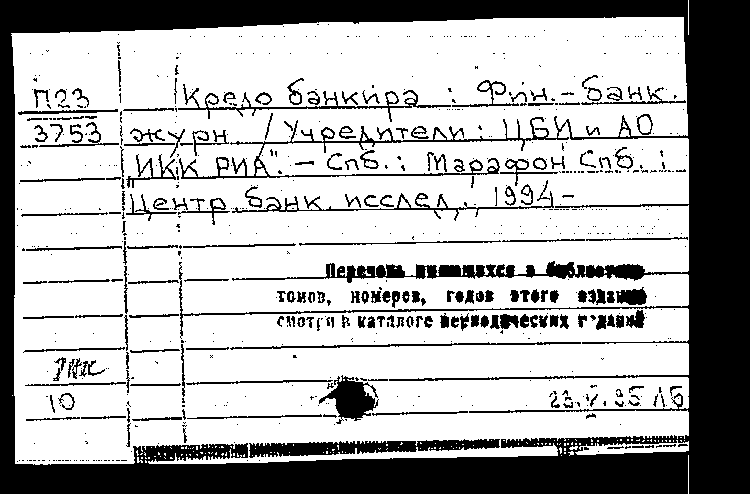 П23 Кредо банкира : Фин.-банк.
3753 журн. / Учредители: ЦБИ и АО
"ИКК РИА". - Спб. : Марафон Спб. :
Центр. банк. исслед., 1994-
Перечень имеющихся в библиотеке
томов, номеров, годов этого издания
смотри в каталоге периодических изданий
10 23.V.95 ЛБ